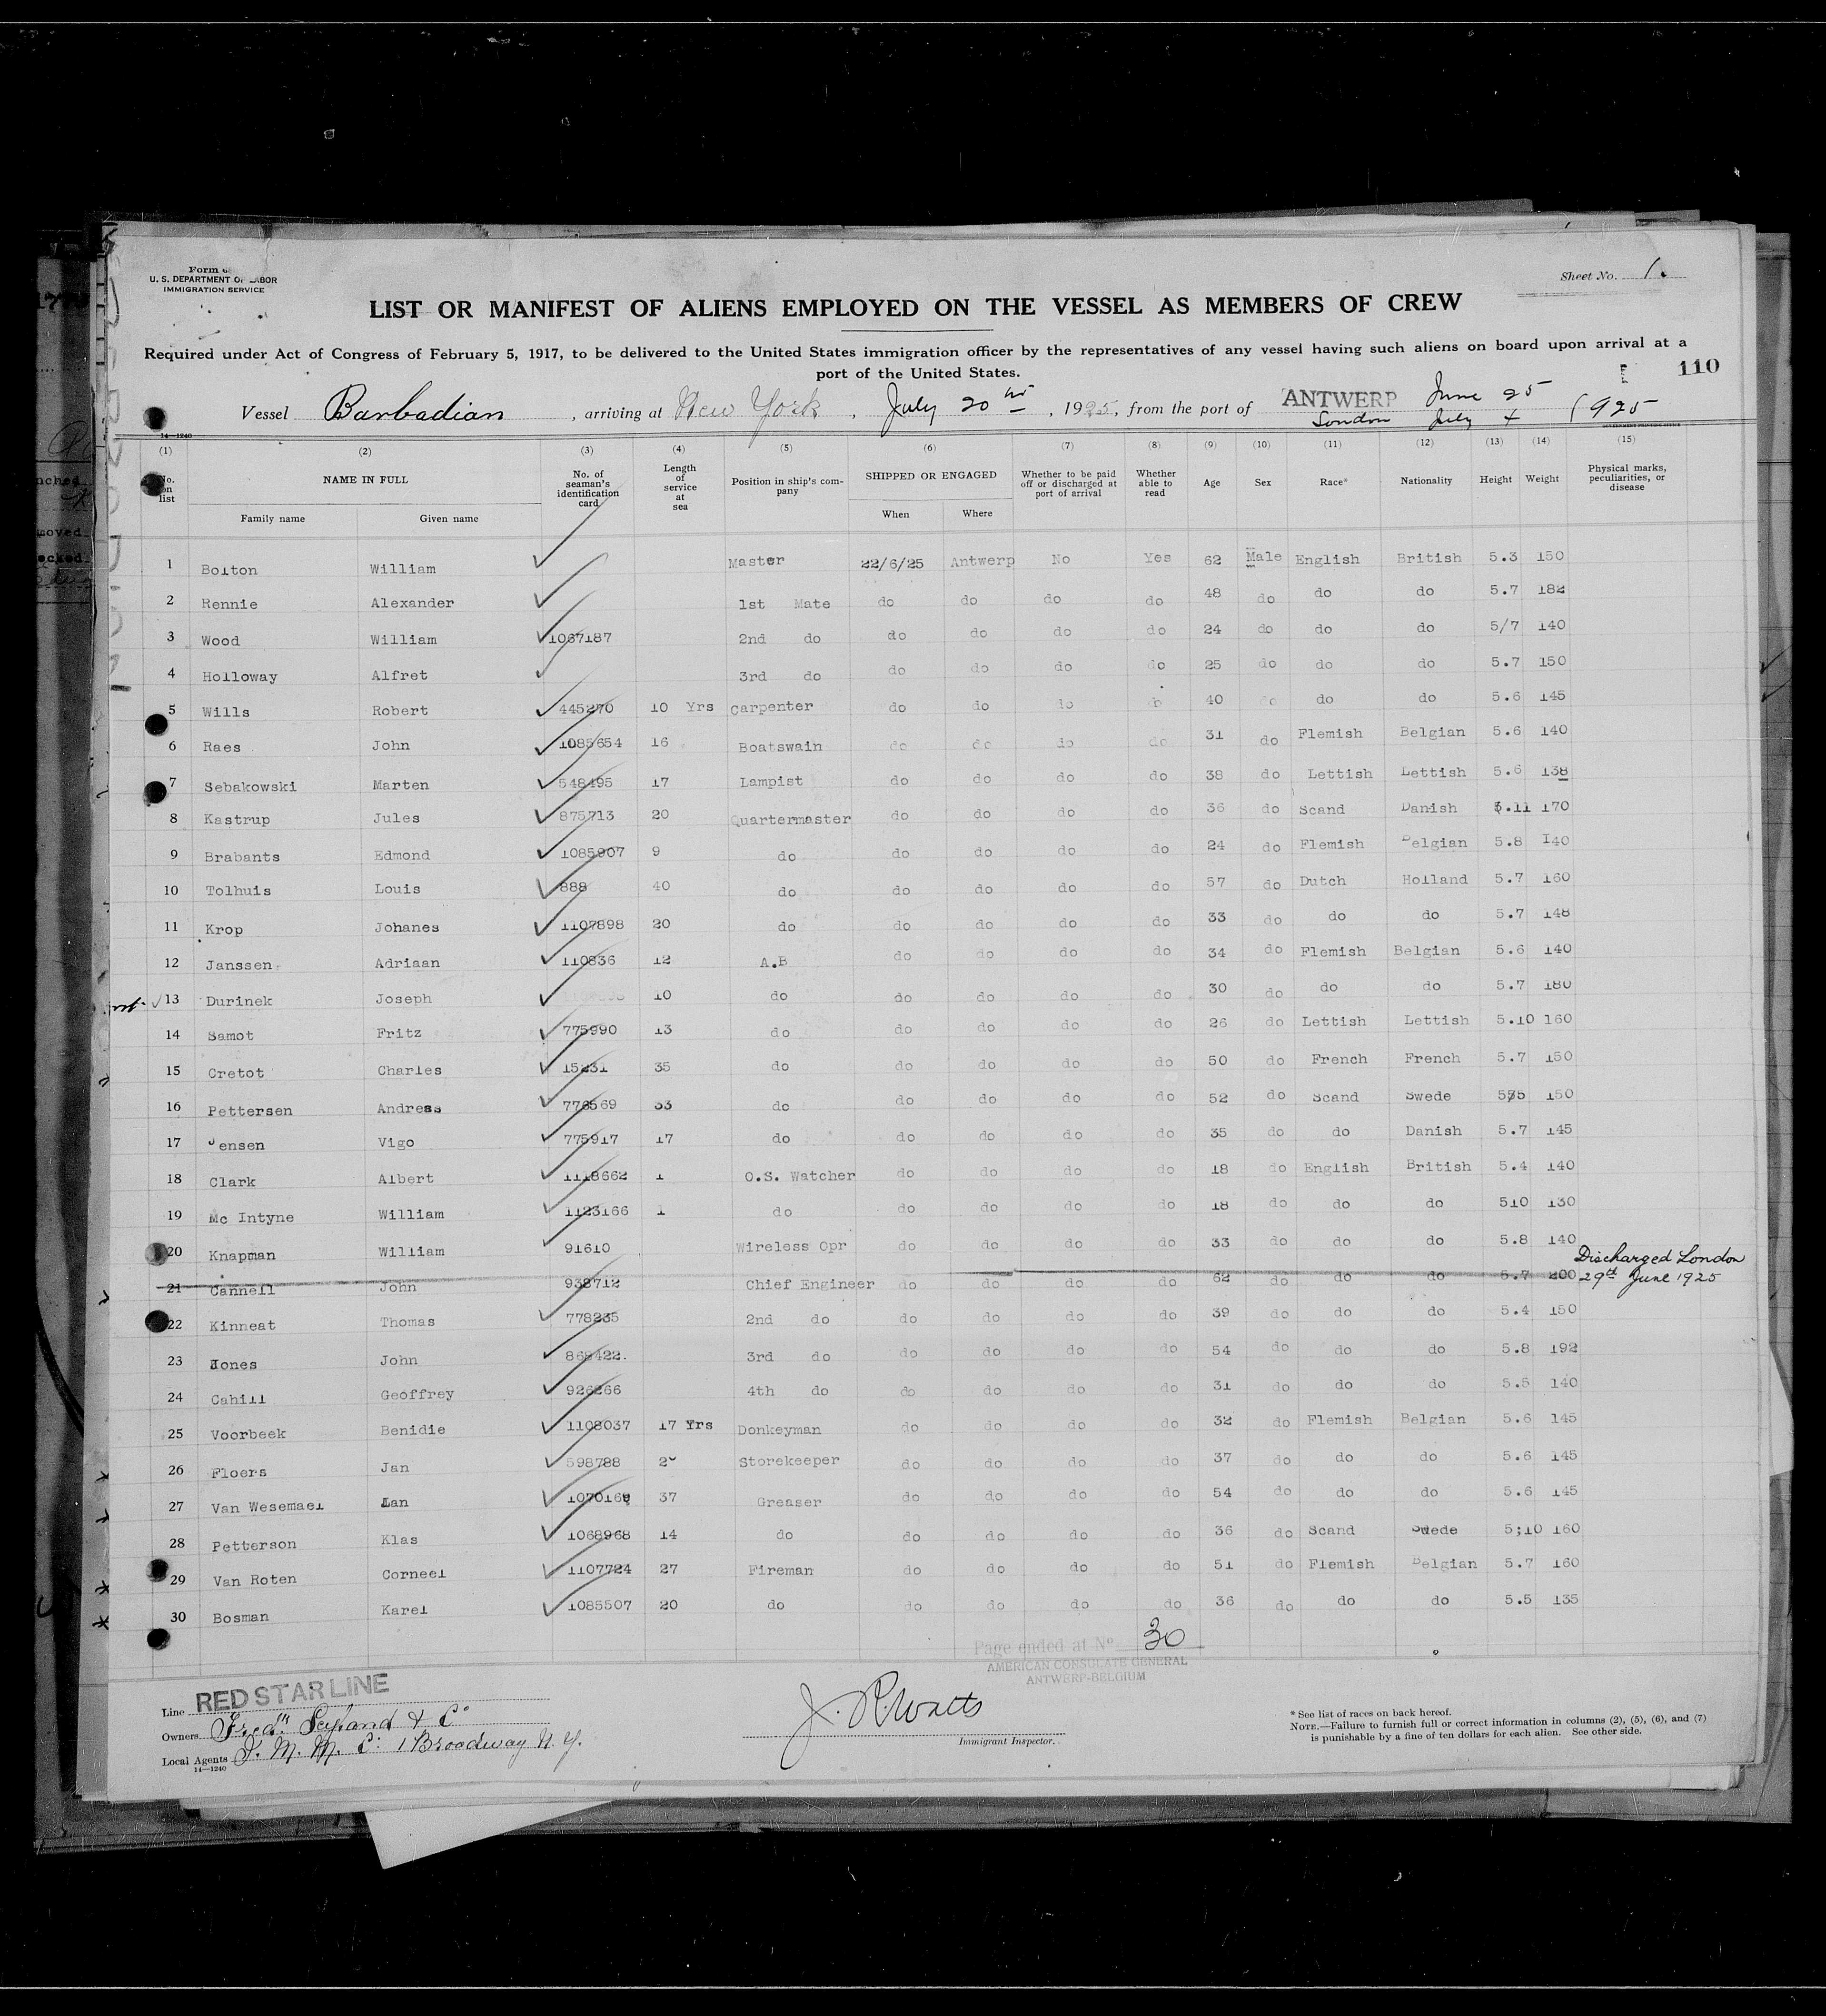 Form 6
U. S. DEPARTMENT OF LABOR
IMMIGRATION SERVICE
Sheet No. 1.
LIST OR MANIFEST OF ALIENS EMPLOYED ON THE VESSEL AS MEMBERS OF CREW
Required under Act of Congress of February 5, 1917, to be delivered to the United States immigration officer by the representatives of any vessel having such aliens on board upon arrival at a
port of the United States.
110
Vessel Barbadian, arriving at New York, July 20th, 1925, from the port of ANTWERP June 25
London July 4 1925
14—1240
(1) (2) (3) (4) (5) (6) (7) (8) (9) (10) (11) (12) (13) (14) (15)
No. on list NAME IN FULL Family name Given name No. of seaman's identification card Length of service at sea Position in ship's company SHIPPED OR ENGAGED When Where Whether to be paid off or discharged at port of arrival Whether able to read Age Sex Race* Nationality Height Weight Physical marks, peculiarities, or disease
1 Bolton William Master 22/6/25 Antwerp No Yes 62 Male English British 5.3 150
2 Rennie Alexander 1st Mate do do do do 48 do do do 5.7 182
3 Wood William 1067187 2nd do do do do do 24 do do do 5/7 140
4 Holloway Alfret 3rd do do do do do 25 do do do 5.7 150
5 Wills Robert 445270 10 Yrs Carpenter do do do 40 do do do 5.6 145
6 Raes John 1085654 16 Boatswain do do do do 31 do Flemish Belgian 5.6 140
7 Sebakowski Marten 548495 17 Lampist do do do do 38 do Lettish Lettish 5.6 138
8 Kastrup Jules 875713 20 Quartermaster do do do do 36 do Scand Danish 5.11 170
9 Brabants Edmond 1085907 9 do do do do do 24 do Flemish Belgian 5.8 140
10 Tolhuis Louis 888 40 do do do do do 57 do Dutch Holland 5.7 160
11 Krop Johanes 1107898 20 do do do do do 33 do do do 5.7 148
12 Janssen Adriaan 110836 12 A.B do do do do 34 do Flemish Belgian 5.6 140
13 Durinek Joseph 10 do do do do do 30 do do do 5.7 180
14 Samot Fritz 775990 13 do do do do do 26 do Lettish Lettish 5.10 160
15 Cretot Charles 15231 35 do do do do do 50 do French French 5.7 150
16 Pettersen Andress 776569 33 do do do do do 52 do Scand Swede 5.5 150
17 Jensen Vigo 775917 17 do do do do do 35 do do Danish 5.7 145
18 Clark Albert 1118662 1 O.S. Watcher do do do do 18 do English British 5.4 140
19 Mc Intyne William 1123166 1 do do do do do 18 do do do 510 130
20 Knapman William 91610 Wireless Opr do do do do 33 do do do 5.8 140
21 Cannell John 938712 Chief Engineer do do do do 62 do do do 5.7 200 Discharged London 29th June 1925
22 Kinneat Thomas 778235 2nd do do do do do 39 do do do 5.4 150
23 Jones John 868422. 3rd do do do do do 54 do do do 5.8 192
24 Cahill Geoffrey 926266 4th do do do do do 31 do do do 5.5 140
25 Voorbeek Benidie 1108037 17 Yrs Donkeyman do do do do 32 do Flemish Belgian 5.6 145
26 Floers Jan 598788 20 Storekeeper do do do do 37 do do do 5.6 145
27 Van Wesemael Jan 1070169 37 Greaser do do do do 54 do do do 5.6 145
28 Petterson Klas 1068968 14 do do do do do 36 do Scand Swede 5;10 160
29 Van Roten Corneel 1107724 27 Fireman do do do do 51 do Flemish Belgian 5.7 160
30 Bosman Karel 1085507 20 do do do do do 36 do do do 5.5 135
Page ended at Nº 30
AMERICAN CONSULATE GENERAL
ANTWERP-BELGIUM
Line RED STAR LINE
Owners Fredk Leyland & Co
Local Agents I. M. M. Co. 1 Broadway N.Y.
14—1240
J. R. Watts
Immigrant Inspector.
* See list of races on back hereof.
NOTE.—Failure to furnish full or correct information in columns (2), (5), (6), and (7)
is punishable by a fine of ten dollars for each alien. See other side.